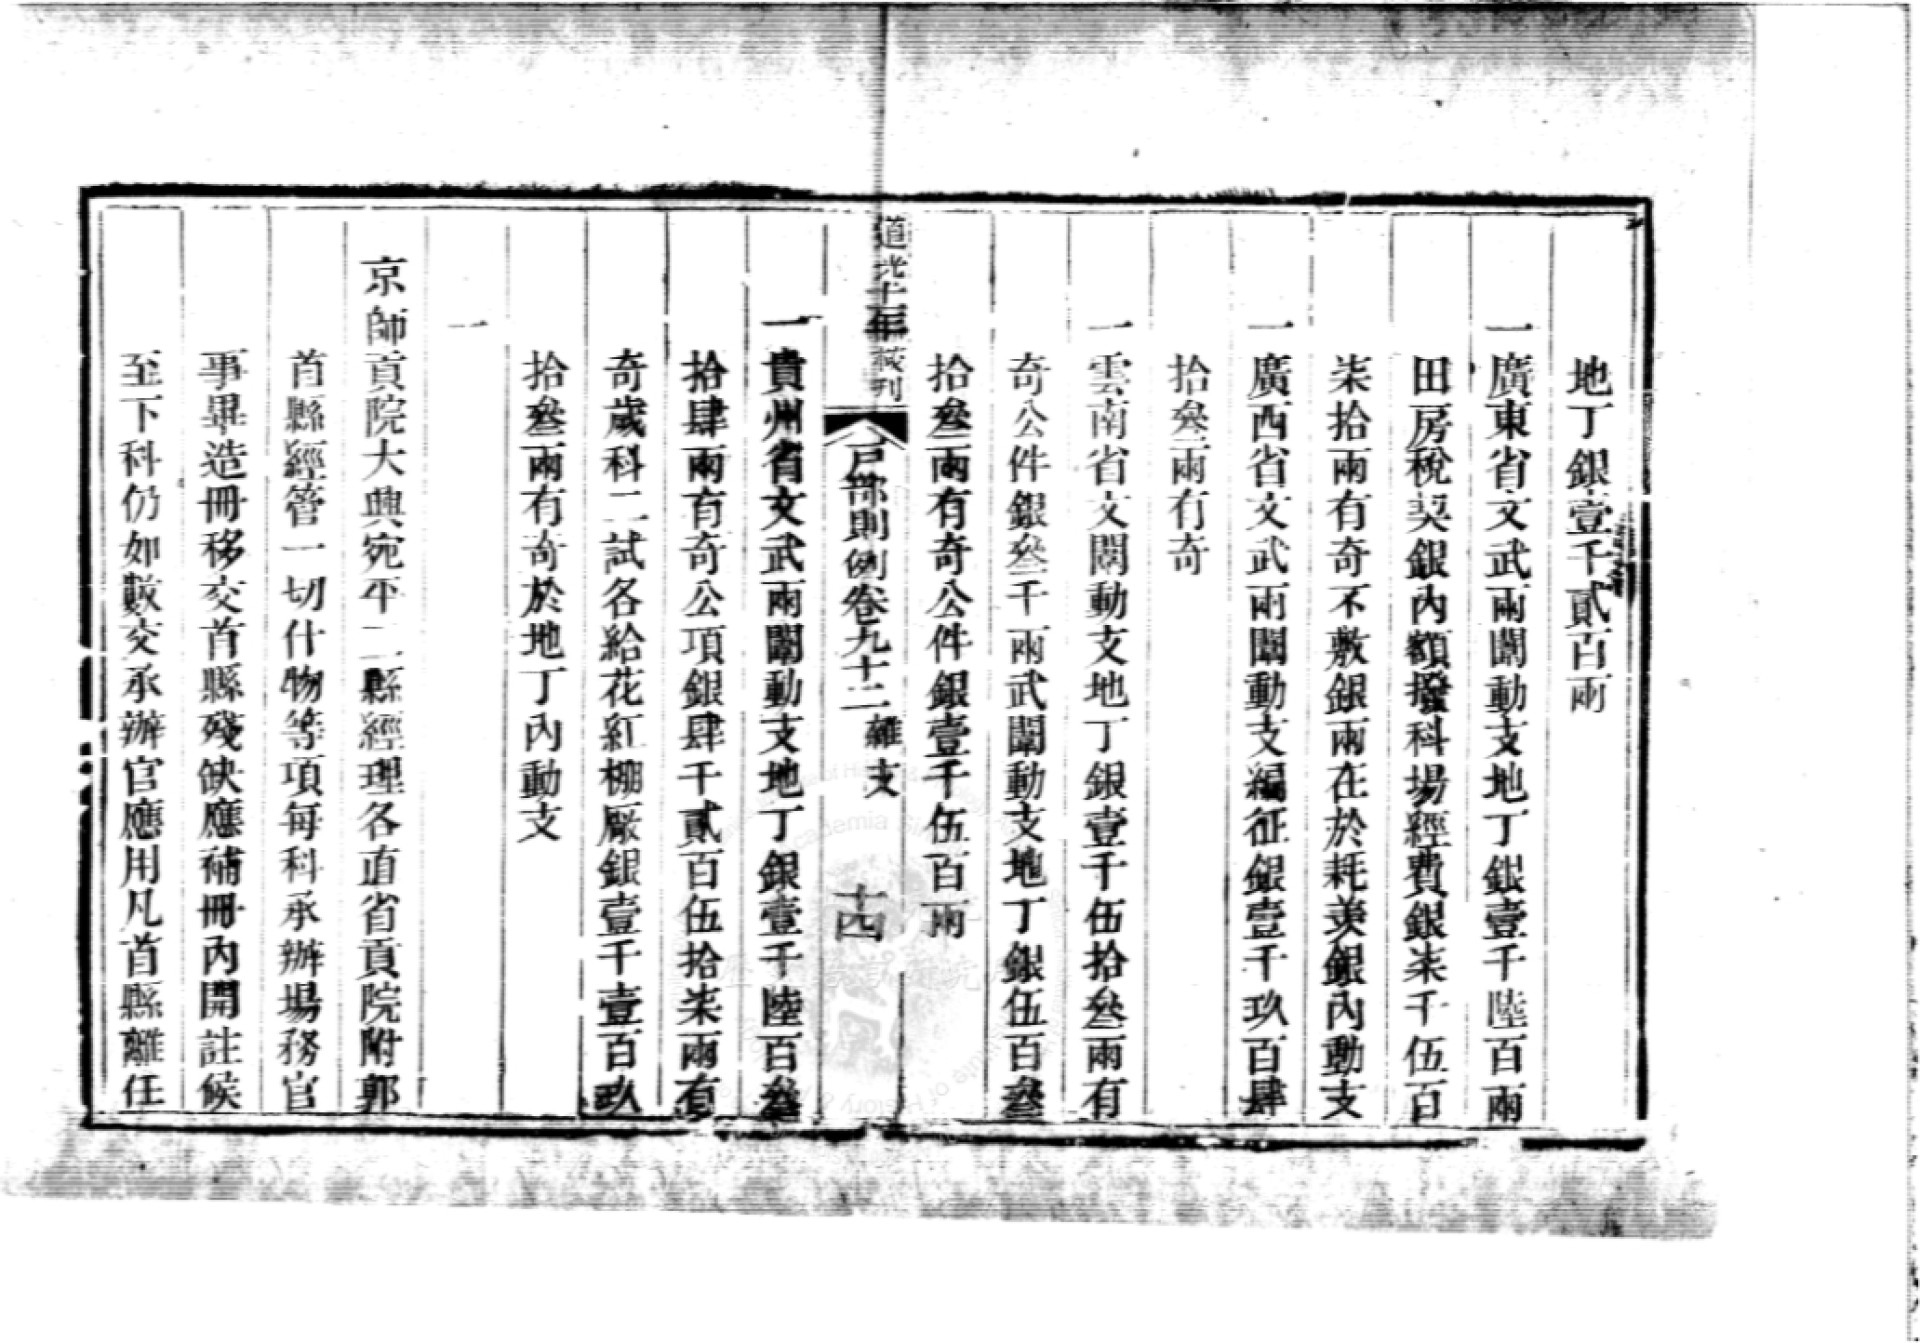 地丁銀壹千貳百兩
一廣東省文武兩闈動支地丁銀壹千陸百兩
田房稅契銀內額撥科場經費銀柒千伍百
柒拾兩有奇不敷銀兩在於耗羨銀內動支
一廣西省文武兩闈動支編征銀壹千玖百肆
拾叄兩有奇
一雲南省文闈動支地丁銀壹千伍拾叄兩有
奇公件銀叄千兩武闈動支地丁銀伍百叄
拾叄兩有奇公件銀壹千伍百兩
道光十一年校刊
戶部則例卷九十二 雜支 十四
一貴州省文武兩闈動支地丁銀壹千陸百叄
拾肆兩有奇公項銀肆千貳百伍拾柒兩有
奇歲科二試各給花紅棚厰銀壹千壹百玖
拾叄兩有奇於地丁內動支
一
京師貢院大興宛平二縣經理各直省貢院附郭
首縣經管一切什物等項每科承辦場務官
事畢造冊移交首縣殘缺應補冊內開註候
至下科仍如數交承辦官應用凡首縣離任